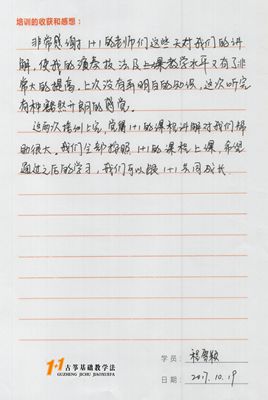 培训的收获和感想：
非常感谢1+1的老师们这些天对我们的讲
解，使我的演奏技法及上课教学水平又有了非
常大的提高。上次没有弄明白的知识，这次听完
有种豁然开朗的感觉。
这两次培训上完，觉得1+1的课程讲解对我们帮
助很大，我们全部按照1+1的课程上课，希望
通过之后的学习，我们可以跟1+1共同成长。
1+1 古筝基础教学法
GUZHENG JICHU JIAOXUEFA
学员：程
日期：2017.10.19